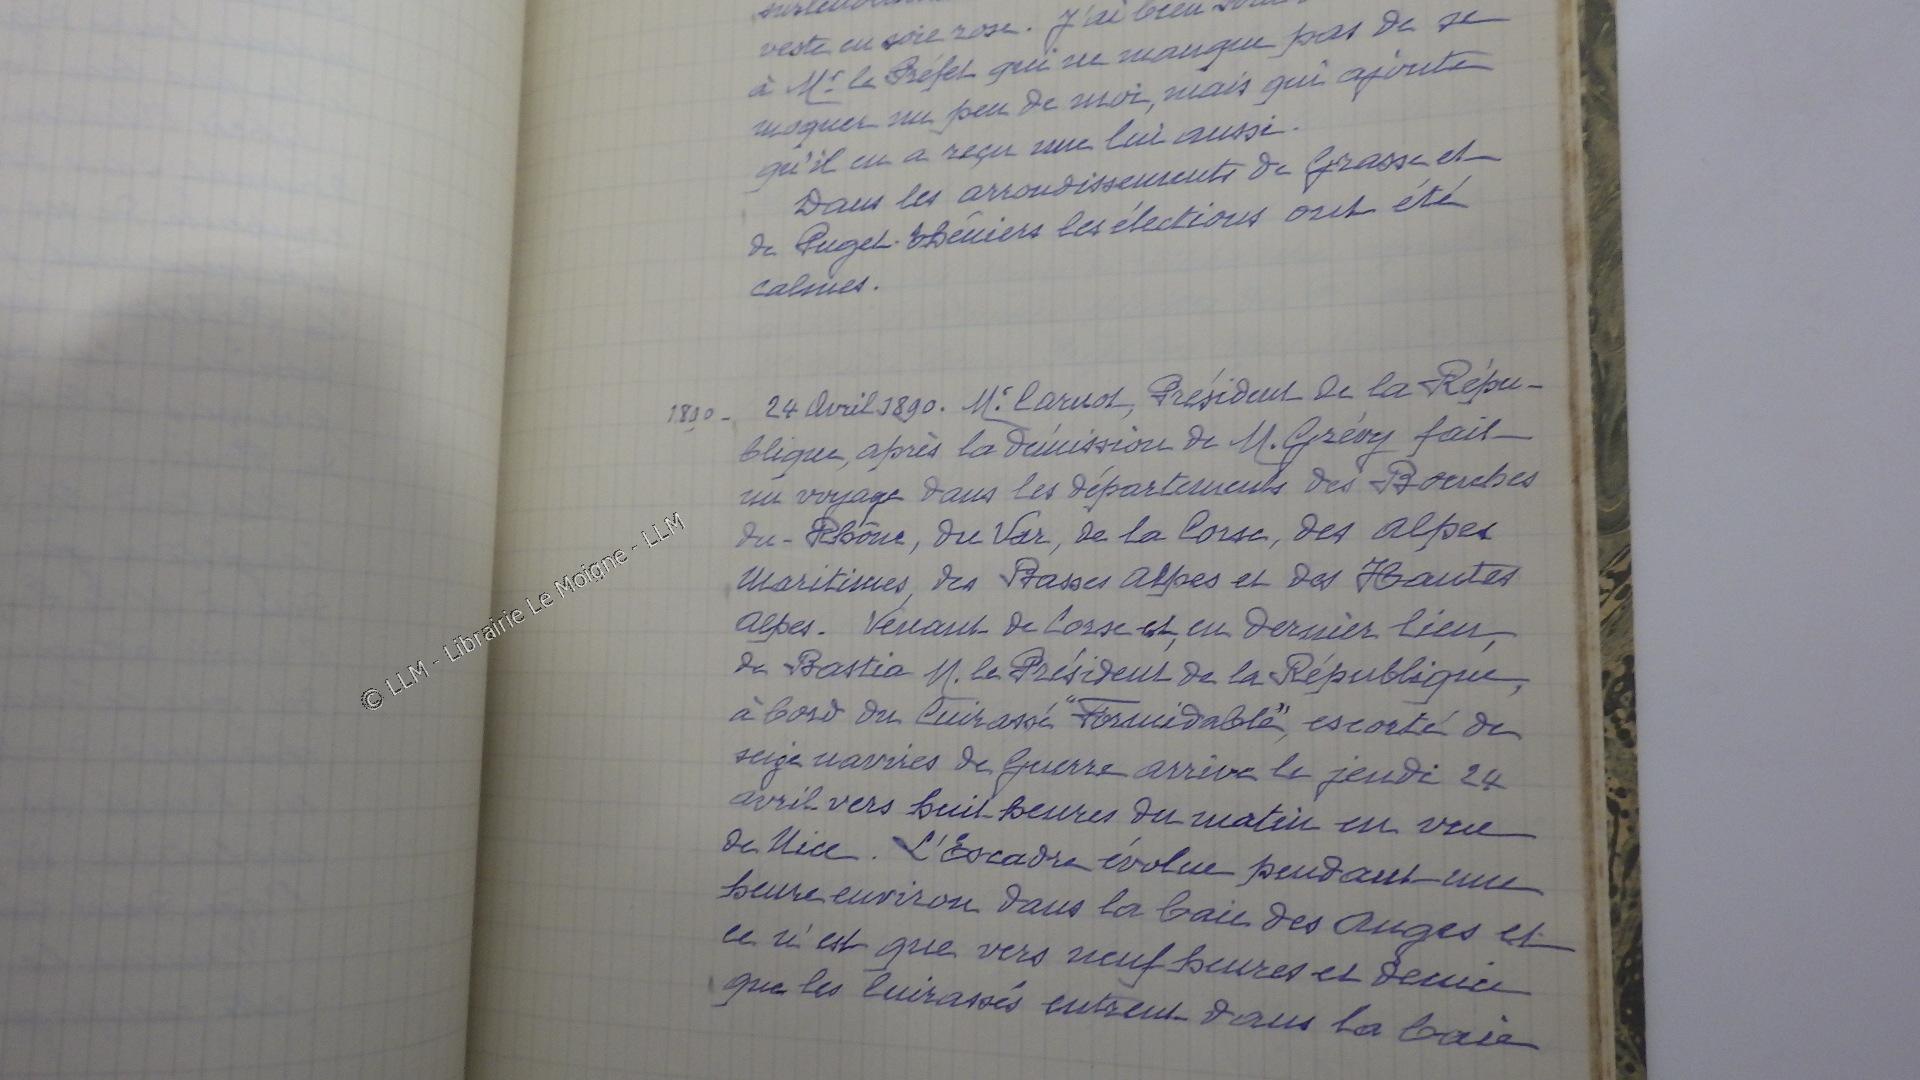 veste en soie rose. J'ai bien
à Mr le Préfet qui ne manque pas de se
moquer un peu de moi, mais qui ajoute
qu'il en a reçu une lui aussi.
Dans les arrondissements de Grasse et
de Puget-Théniers les élections ont été
calmes.
1890 - 24 Avril 1890. Mr Carnot, Président de la Répu-
blique, après la démission de M. Grévy fait
un voyage dans les départements des Bouches
du-Rhône, du Var, de la Corse, des Alpes
Maritimes, des Basses Alpes et des Hautes
Alpes. Venant de Corse et, en dernier lieu,
de Bastia M. le Président de la République,
à bord du Cuirassé "Formidable", escorté de
seize navires de Guerre arrive le jeudi 24
avril vers huit heures du matin en vue
de Nice. L'Escadre évolue pendant une
heure environ dans la baie des Anges et
ce n'est que vers neuf heures et demie
que les Cuirassés entrent dans la baie
© LLM - Librairie Le Moigne - LLM